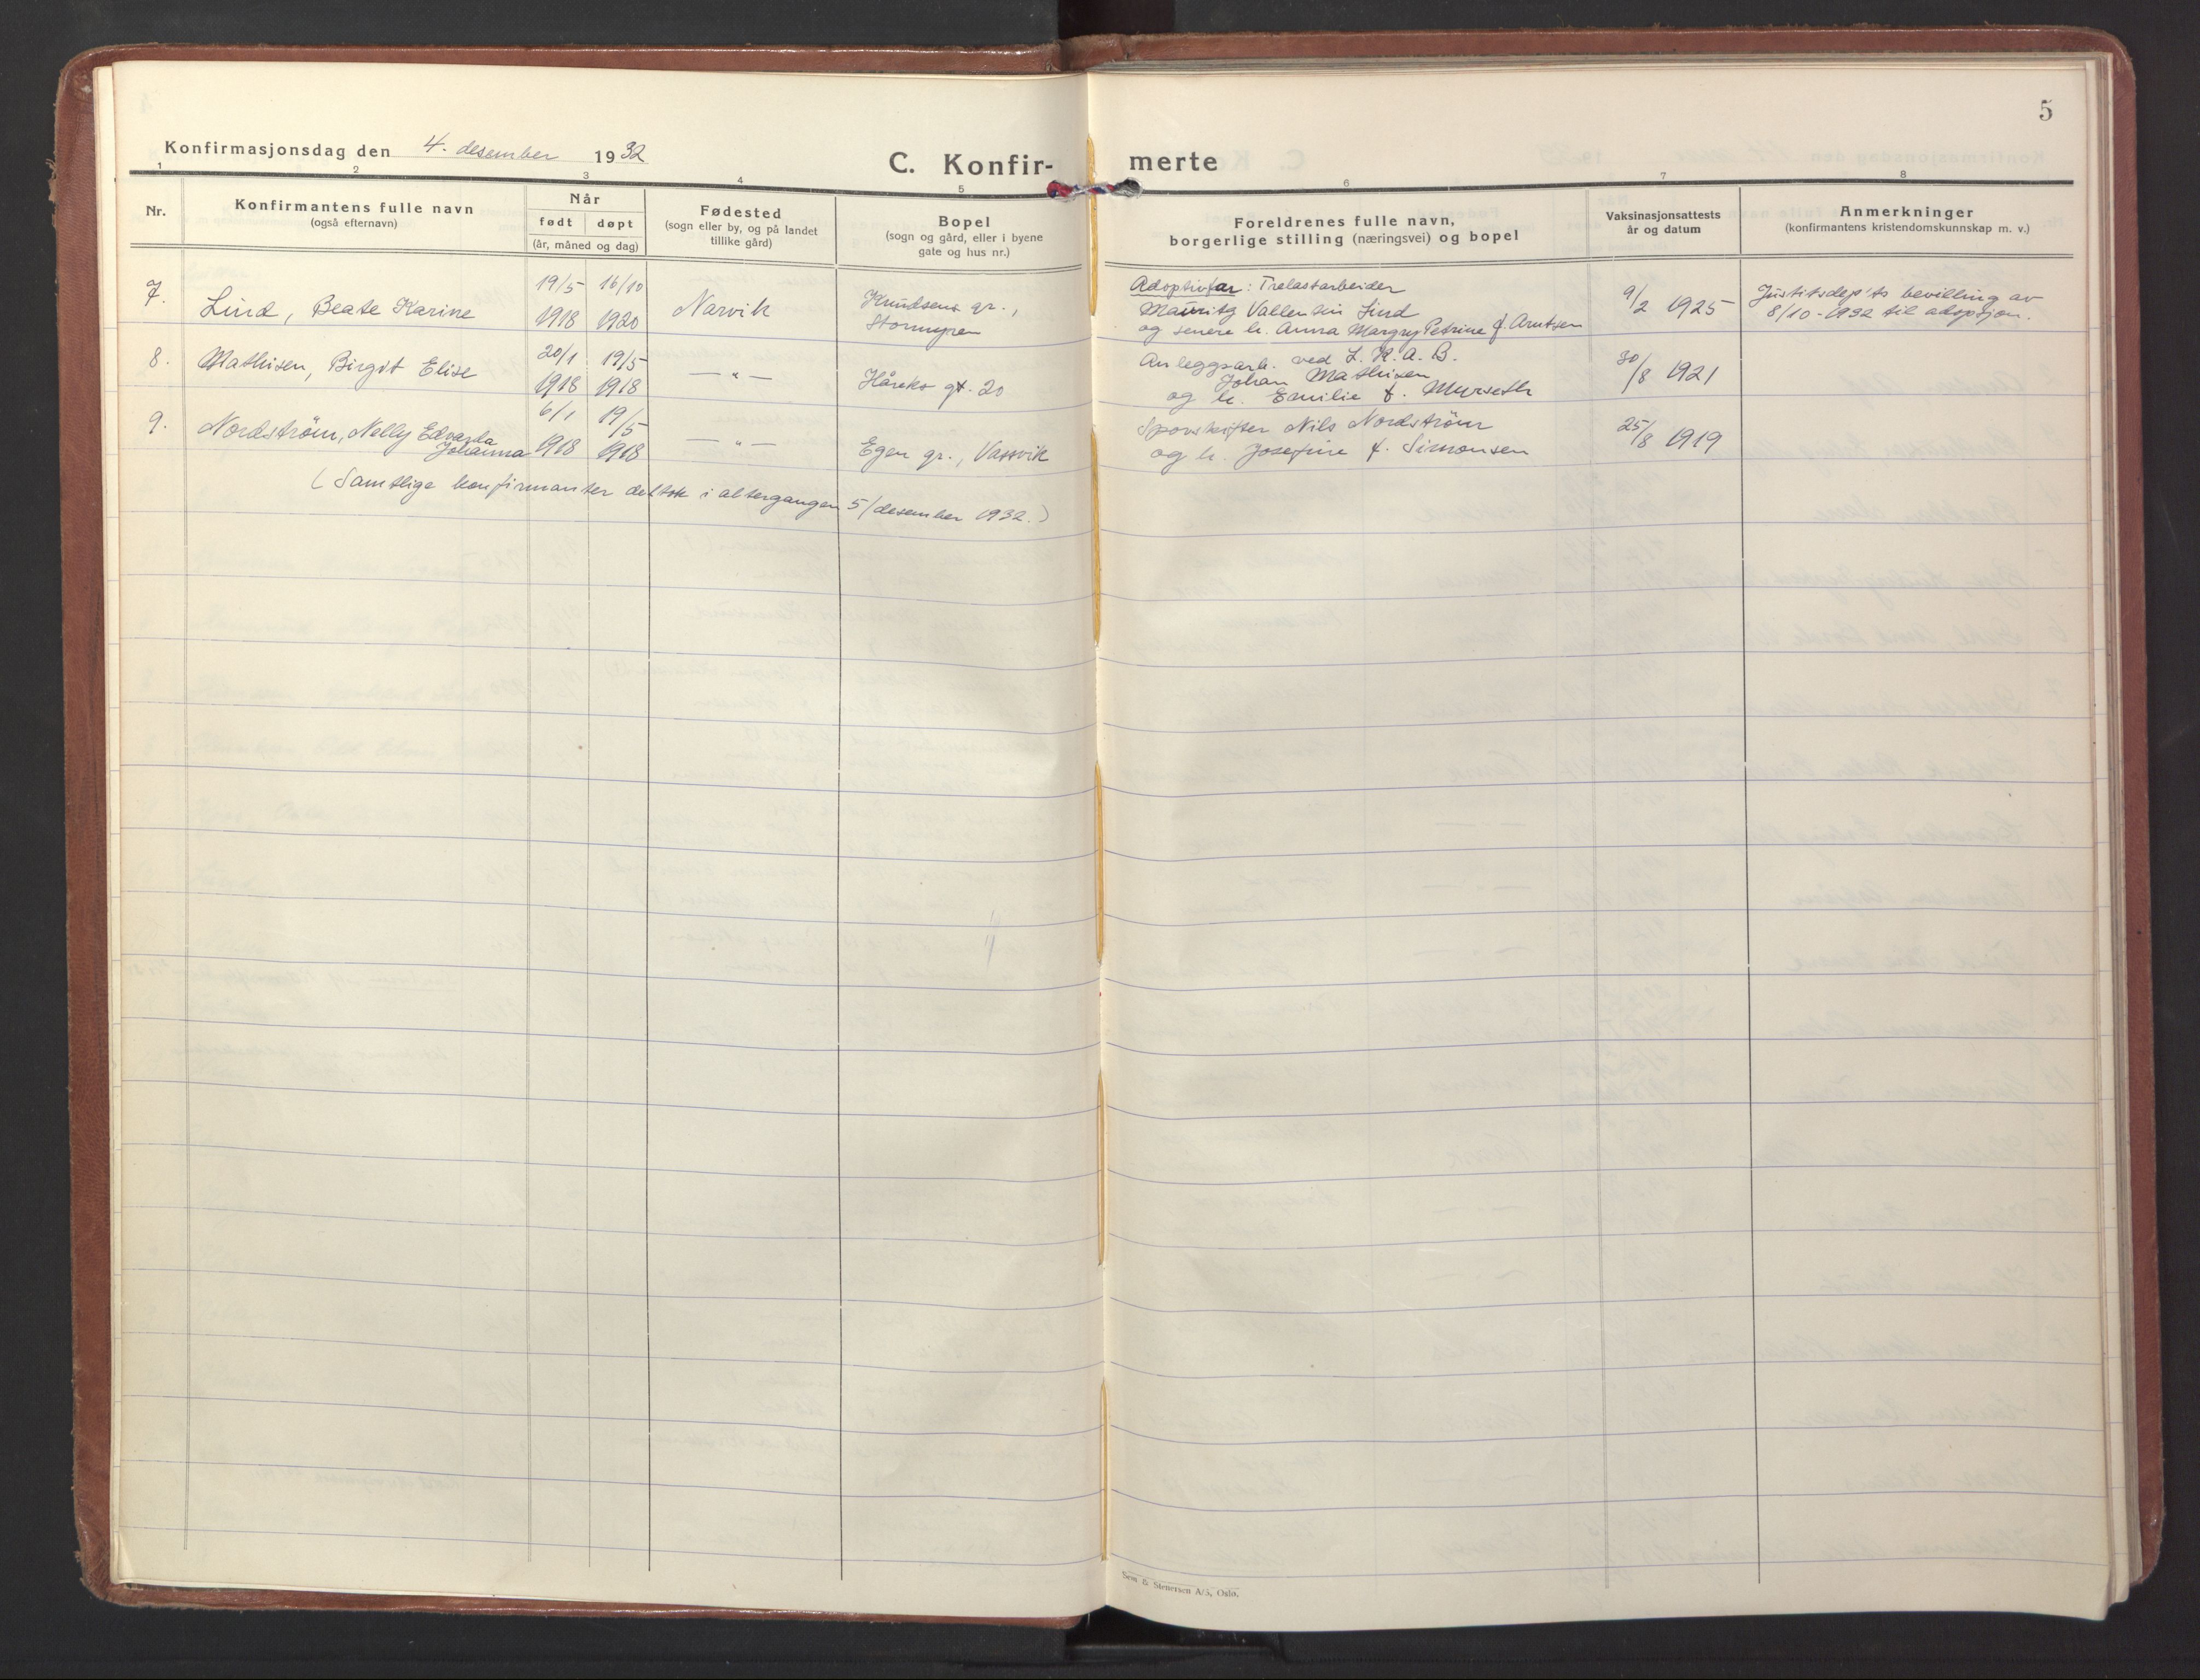 5
Konfirmasjonsdag den 4. desember 1932
C. Konfir-merte
1 2 3 4 5 6 7 8
Nr.
Konfirmantens fulle navn
(også efternavn)
Når
født døpt
(år, måned og dag)
Fødested
(sogn eller by, og på landet
tillike gård)
Bopel
(sogn og gård, eller i byene
gate og hus nr.)
Foreldrenes fulle navn,
borgerlige stilling (næringsvei) og bopel
Vaksinasjonsattests
år og datum
Anmerkninger
(konfirmantens kristendomskunnskap m. v.)
7.
Lind, Beate Karine
19/5 1918
16/10 1920
Narvik
Knudsens gr.,
Stormyren
Adoptivfar: Trelastarbeider
Mauritz Vallentin Lind
og senere h. Anna Margry Petrine f. Arntsen
9/2 1925
Justitsdep'ts bevilling av
8/10-1932 til adopsjon.
8.
Mathisen, Birgit Elise
20/1 1918
19/5 1918
— " —
Håreks gt. 20
Anleggsarb. ved L.K.A.B.
Johan Mathisen
og h. Emilie f. Murseth
30/8 1921
9.
Nordström, Nelly Edvarda
Johanna
6/1 1918
19/5 1918
— " —
Egen gr., Vassvik
Sporskifter Nils Nordström
og h. Josefine f. Simonsen
25/8 1919
(Samtlige konfirmanter deltok i altergangen 5/desember 1932.)
Sem & Stenersen A/S, Oslo.